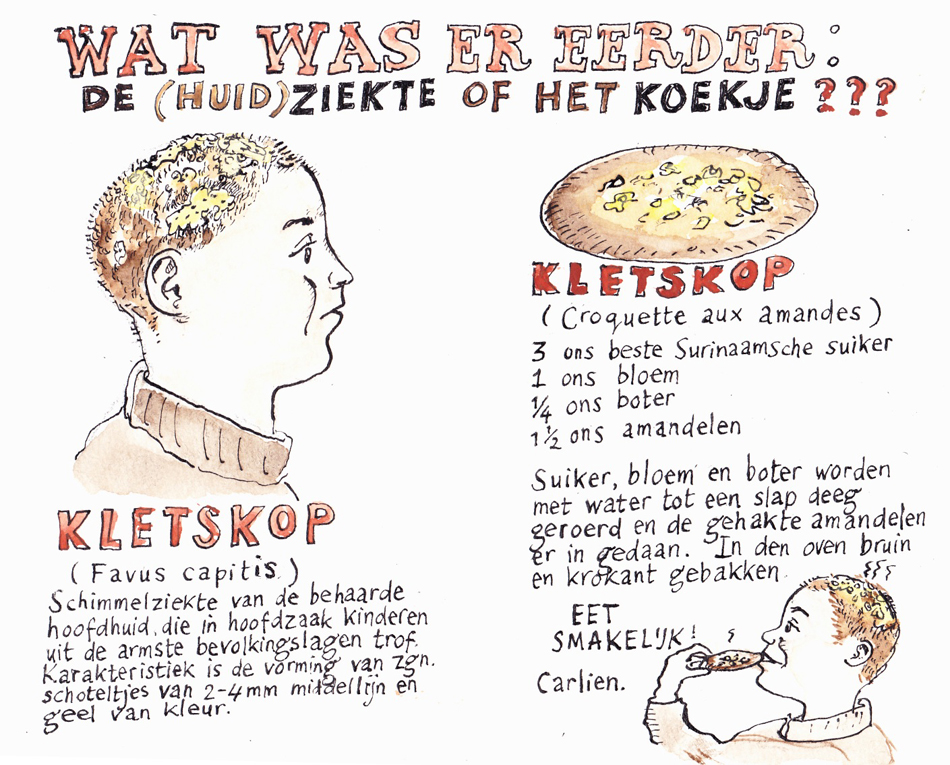 WAT WAS ER EERDER:
DE (HUID)ZIEKTE OF HET KOEKJE ???
KLETSKOP
(Favus capitis)
Schimmelziekte van de behaarde
hoofdhuid, die in hoofdzaak kinderen
uit de armste bevolkingslagen trof.
Karakteristiek is de vorming van zgn.
schoteltjes van 2-4mm middellijn en
geel van kleur.
KLETSKOP
(Croquette aux amandes)
3 ons beste Surinaamsche suiker
1 ons bloem
1/4 ons boter
1 1/2 ons amandelen
Suiker, bloem en boter worden
met water tot een slap deeg
geroerd en de gehakte amandelen
er in gedaan. In den oven bruin
en krokant gebakken.
EET
SMAKELIJK!
Carlien.